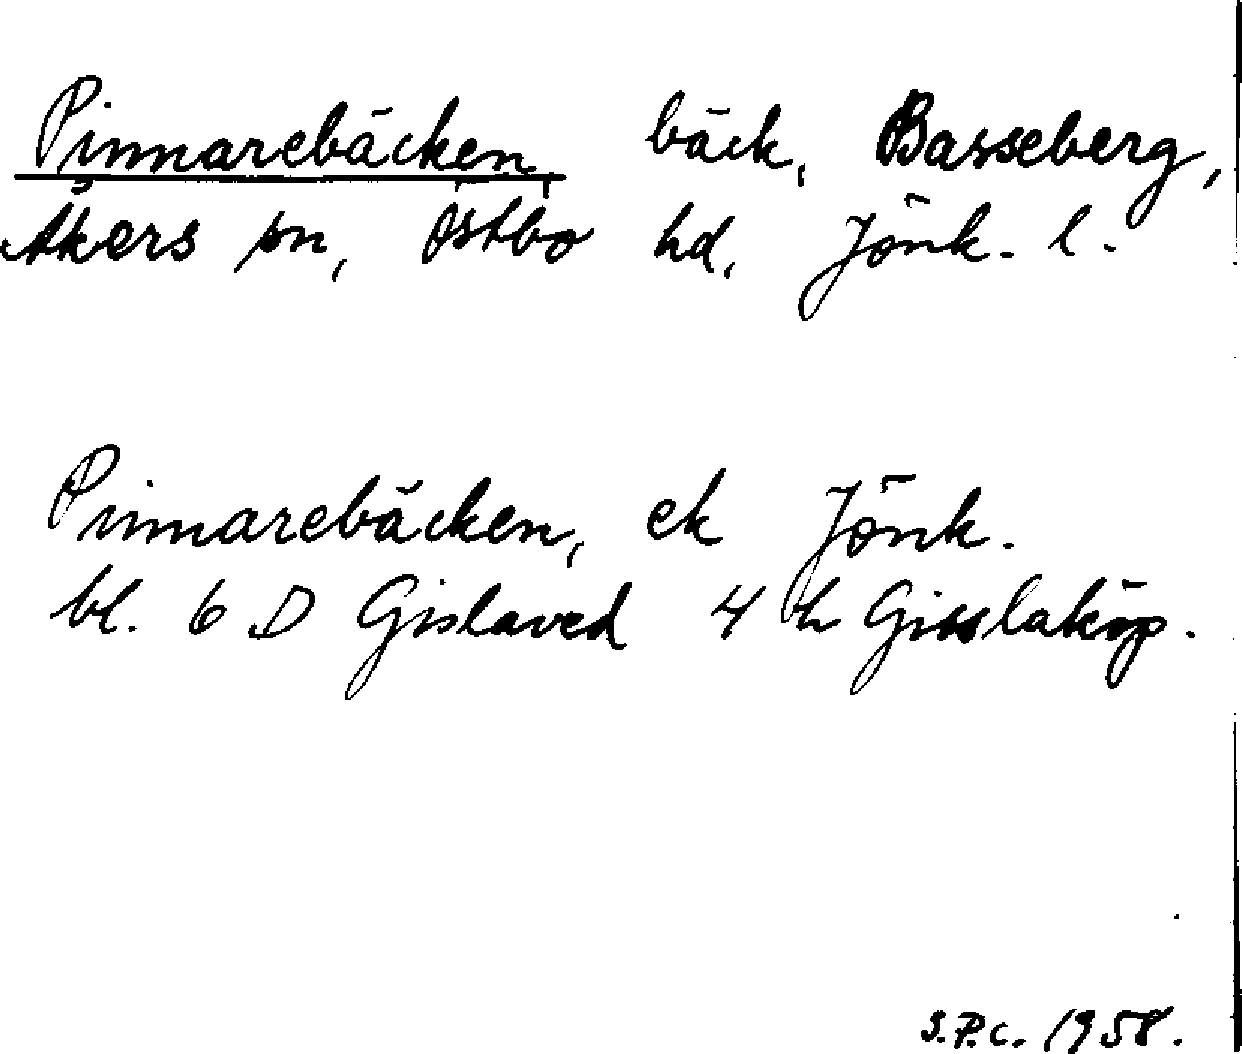 Pinnarebäcken, bäck, Basseberg,
Åkers sn, Östbo hd, Jönk. l.
Pinnarebäcken, ek Jönk.
bl. 6 D Gislaved 4 h Gisslaköp.
S.P.C. 1958.